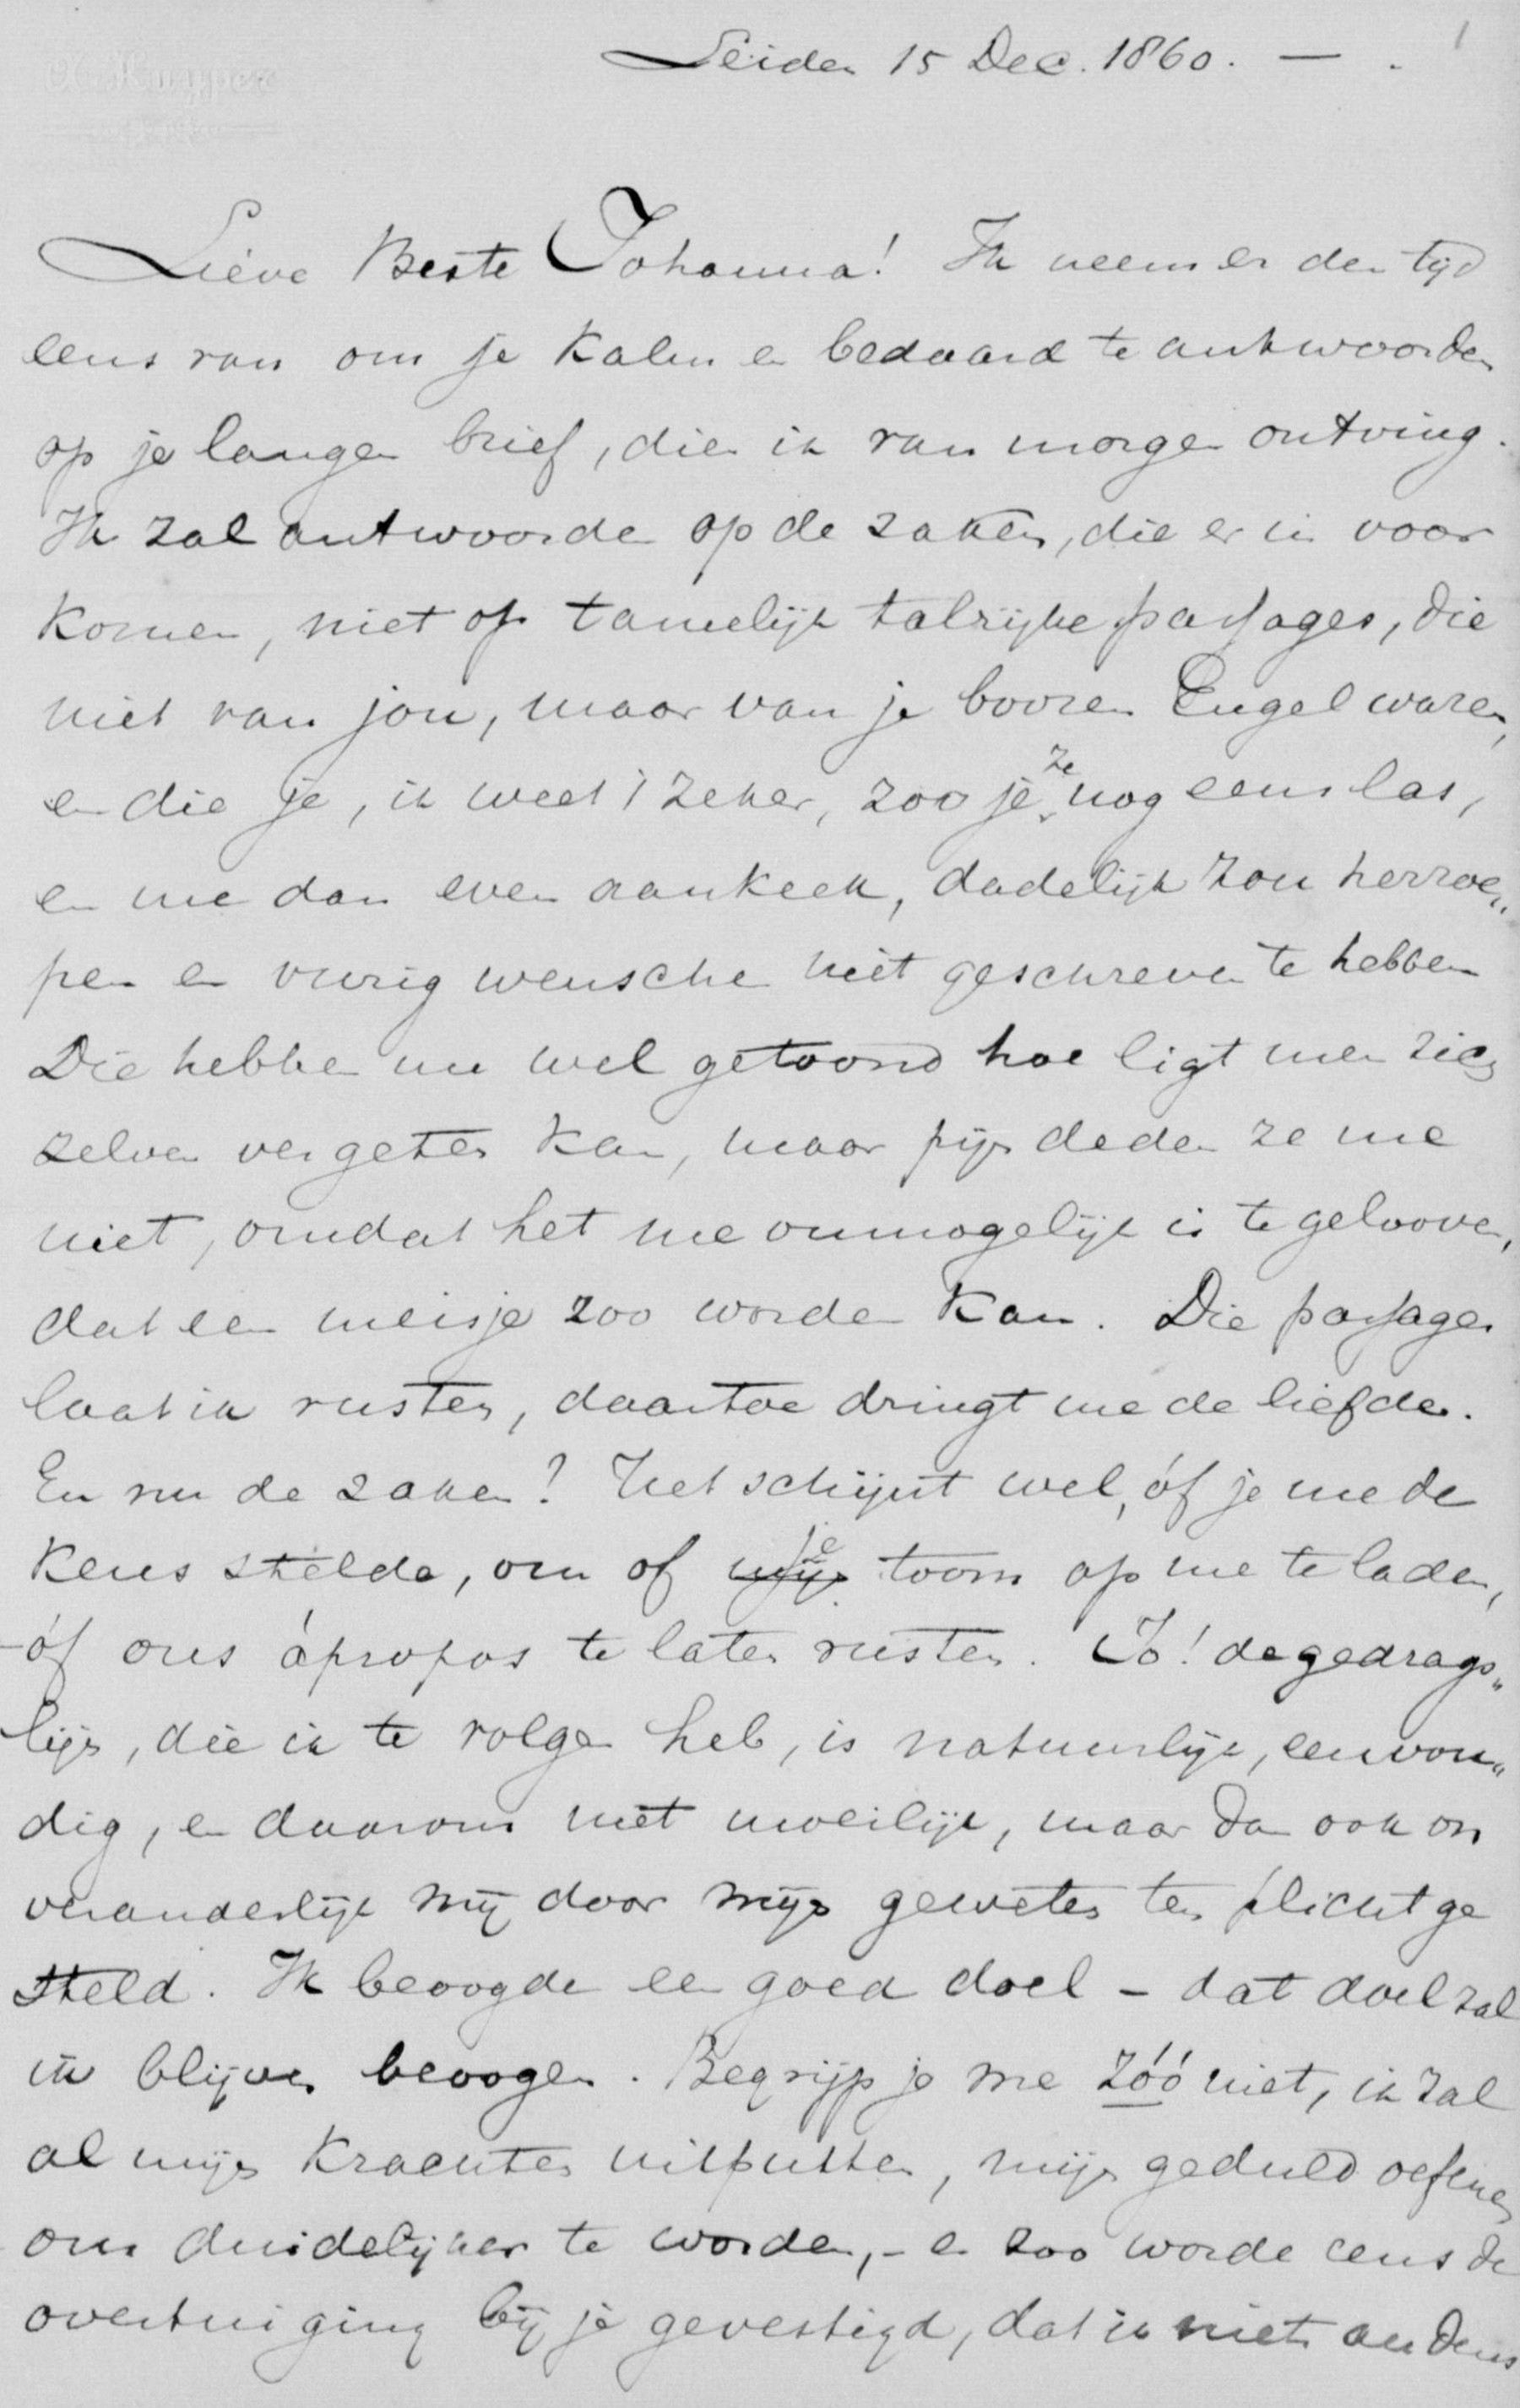 1
Leiden 15 Dec. 1860. — .
Lieve Beste Johanna! Ik neem er den tijd
eens van om je kalm en bedaard te antwoorden
op je langen brief, dien ik van morgen ontving.
Ik zal antwoorden op de zaken, die er in voor
komen, niet op tamelijk talrijke passages, die
niet van jou, maar van je boozen Engel waren,
en die je, ik weet 't zeker, zoo je ze nog eens las,
en me dan even aankeek, dadelijk zou herroe„
pen en vurig wenschen niet geschreven te hebben
Die hebben me wel getoond hoe ligt men zich
zelven vergeten kan, maar pijn deden ze me
niet, omdat het me onmogelijk is te gelooven,
dat een meisje zoo worden kan. Die passages
laat ik rusten, daartoe dringt me de liefde.
En nu de zaken? Het schijnt wel, óf je me de
keus stelde, om of mijn je toorn op me te laden,
-óf ons ápropos te laten rusten. Jo! de gedrags„
lijn, die ik te volgen heb, is natuurlijk, eenvou„
dig, en daarom niet moeilijk, maar dan ook on
veranderlijk mij door mijn geweten ten plicht ge
steld. Ik beoogde een goed doel – dat doel zal
ik blijven beoogen. Begrijp je me zóó niet, ik zal
al mijn krachten uitputten, mijn geduld oefenen
om duidelijker te worden, - en zoo worde eens de
overtuiging bij je gevestigd, dat ik niet anders